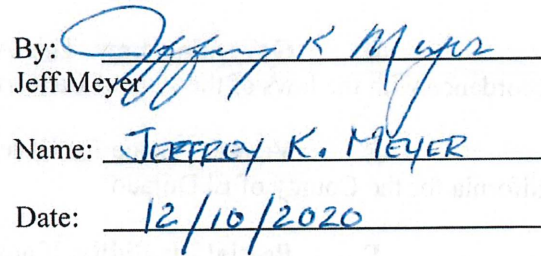 By: Jeffrey K Meyer
Jeff Meyer
Name: JEFFREY K. MEYER
Date: 12/10/2020